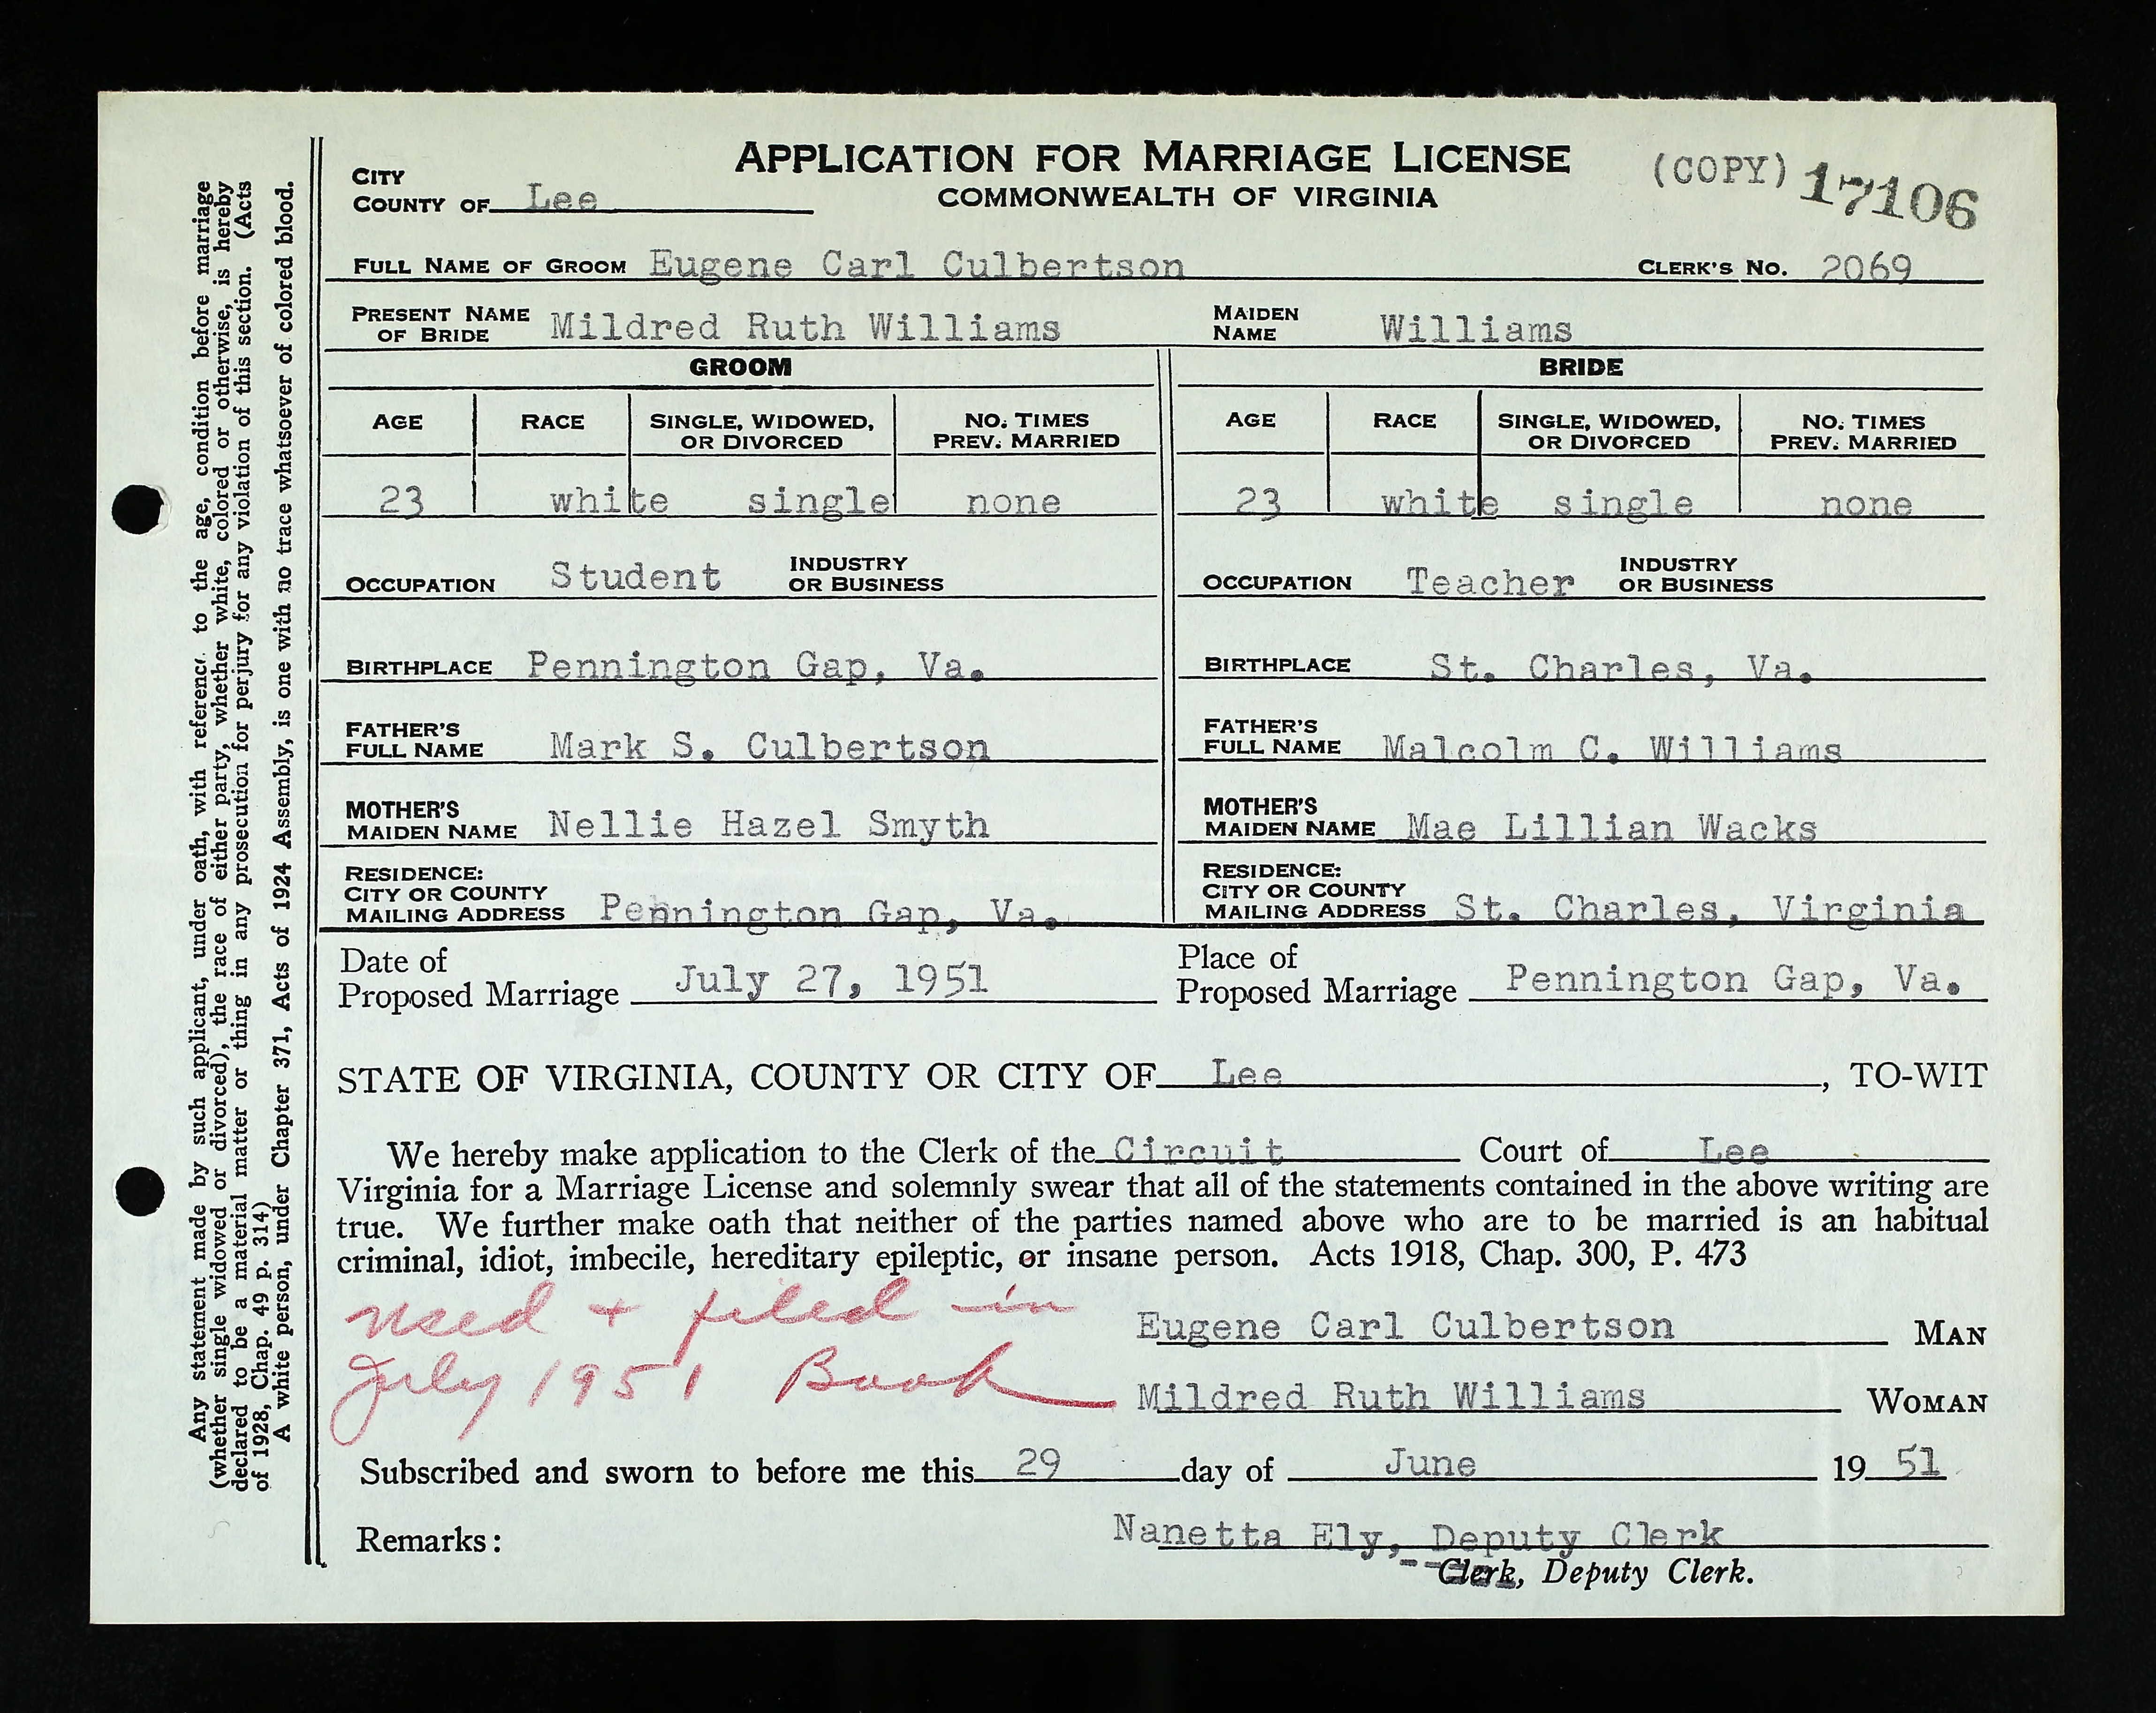 APPLICATION FOR MARRIAGE LICENSE
(COPY) 17106
CITY
COUNTY OF Lee
COMMONWEALTH OF VIRGINIA
FULL NAME OF GROOM Eugene Carl Culbertson CLERK'S NO. 2069
PRESENT NAME OF BRIDE Mildred Ruth Williams MAIDEN NAME Williams
GROOM BRIDE
AGE RACE SINGLE, WIDOWED, OR DIVORCED NO. TIMES PREV. MARRIED AGE RACE SINGLE, WIDOWED, OR DIVORCED NO. TIMES PREV. MARRIED
23 white single none 23 white single none
OCCUPATION Student INDUSTRY OR BUSINESS OCCUPATION Teacher INDUSTRY OR BUSINESS
BIRTHPLACE Pennington Gap, Va. BIRTHPLACE St. Charles, Va.
FATHER'S FULL NAME Mark S. Culbertson FATHER'S FULL NAME Malcolm C. Williams
MOTHER'S MAIDEN NAME Nellie Hazel Smyth MOTHER'S MAIDEN NAME Mae Lillian Wacks
RESIDENCE: CITY OR COUNTY MAILING ADDRESS Pennington Gap, Va. RESIDENCE: CITY OR COUNTY MAILING ADDRESS St. Charles, Virginia
Date of Proposed Marriage July 27, 1951 Place of Proposed Marriage Pennington Gap, Va.
STATE OF VIRGINIA, COUNTY OR CITY OF Lee, TO-WIT
We hereby make application to the Clerk of the Circuit Court of Lee
Virginia for a Marriage License and solemnly swear that all of the statements contained in the above writing are
true. We further make oath that neither of the parties named above who are to be married is an habitual
criminal, idiot, imbecile, hereditary epileptic, or insane person. Acts 1918, Chap. 300, P. 473
used + filed in
July 1951 Book
Eugene Carl Culbertson MAN
Mildred Ruth Williams WOMAN
Subscribed and sworn to before me this 29 day of June 19 51
Remarks: Nanetta Ely, Deputy Clerk
Clerk, Deputy Clerk.
Any statement made by such applicant, under oath, with reference to the age, condition before marriage
(whether single widowed or divorced), the race of either party, whether white, colored or otherwise, is hereby
declared to be a material matter or thing in any prosecution for perjury for any violation of this section. (Acts
of 1928, Chap. 49 p. 314)
A white person, under Chapter 371, Acts of 1924 Assembly, is one with no trace whatsoever of colored blood.